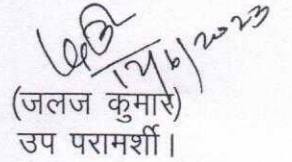 12/6/2023
(जलज कुमार)
उप परामर्शी।